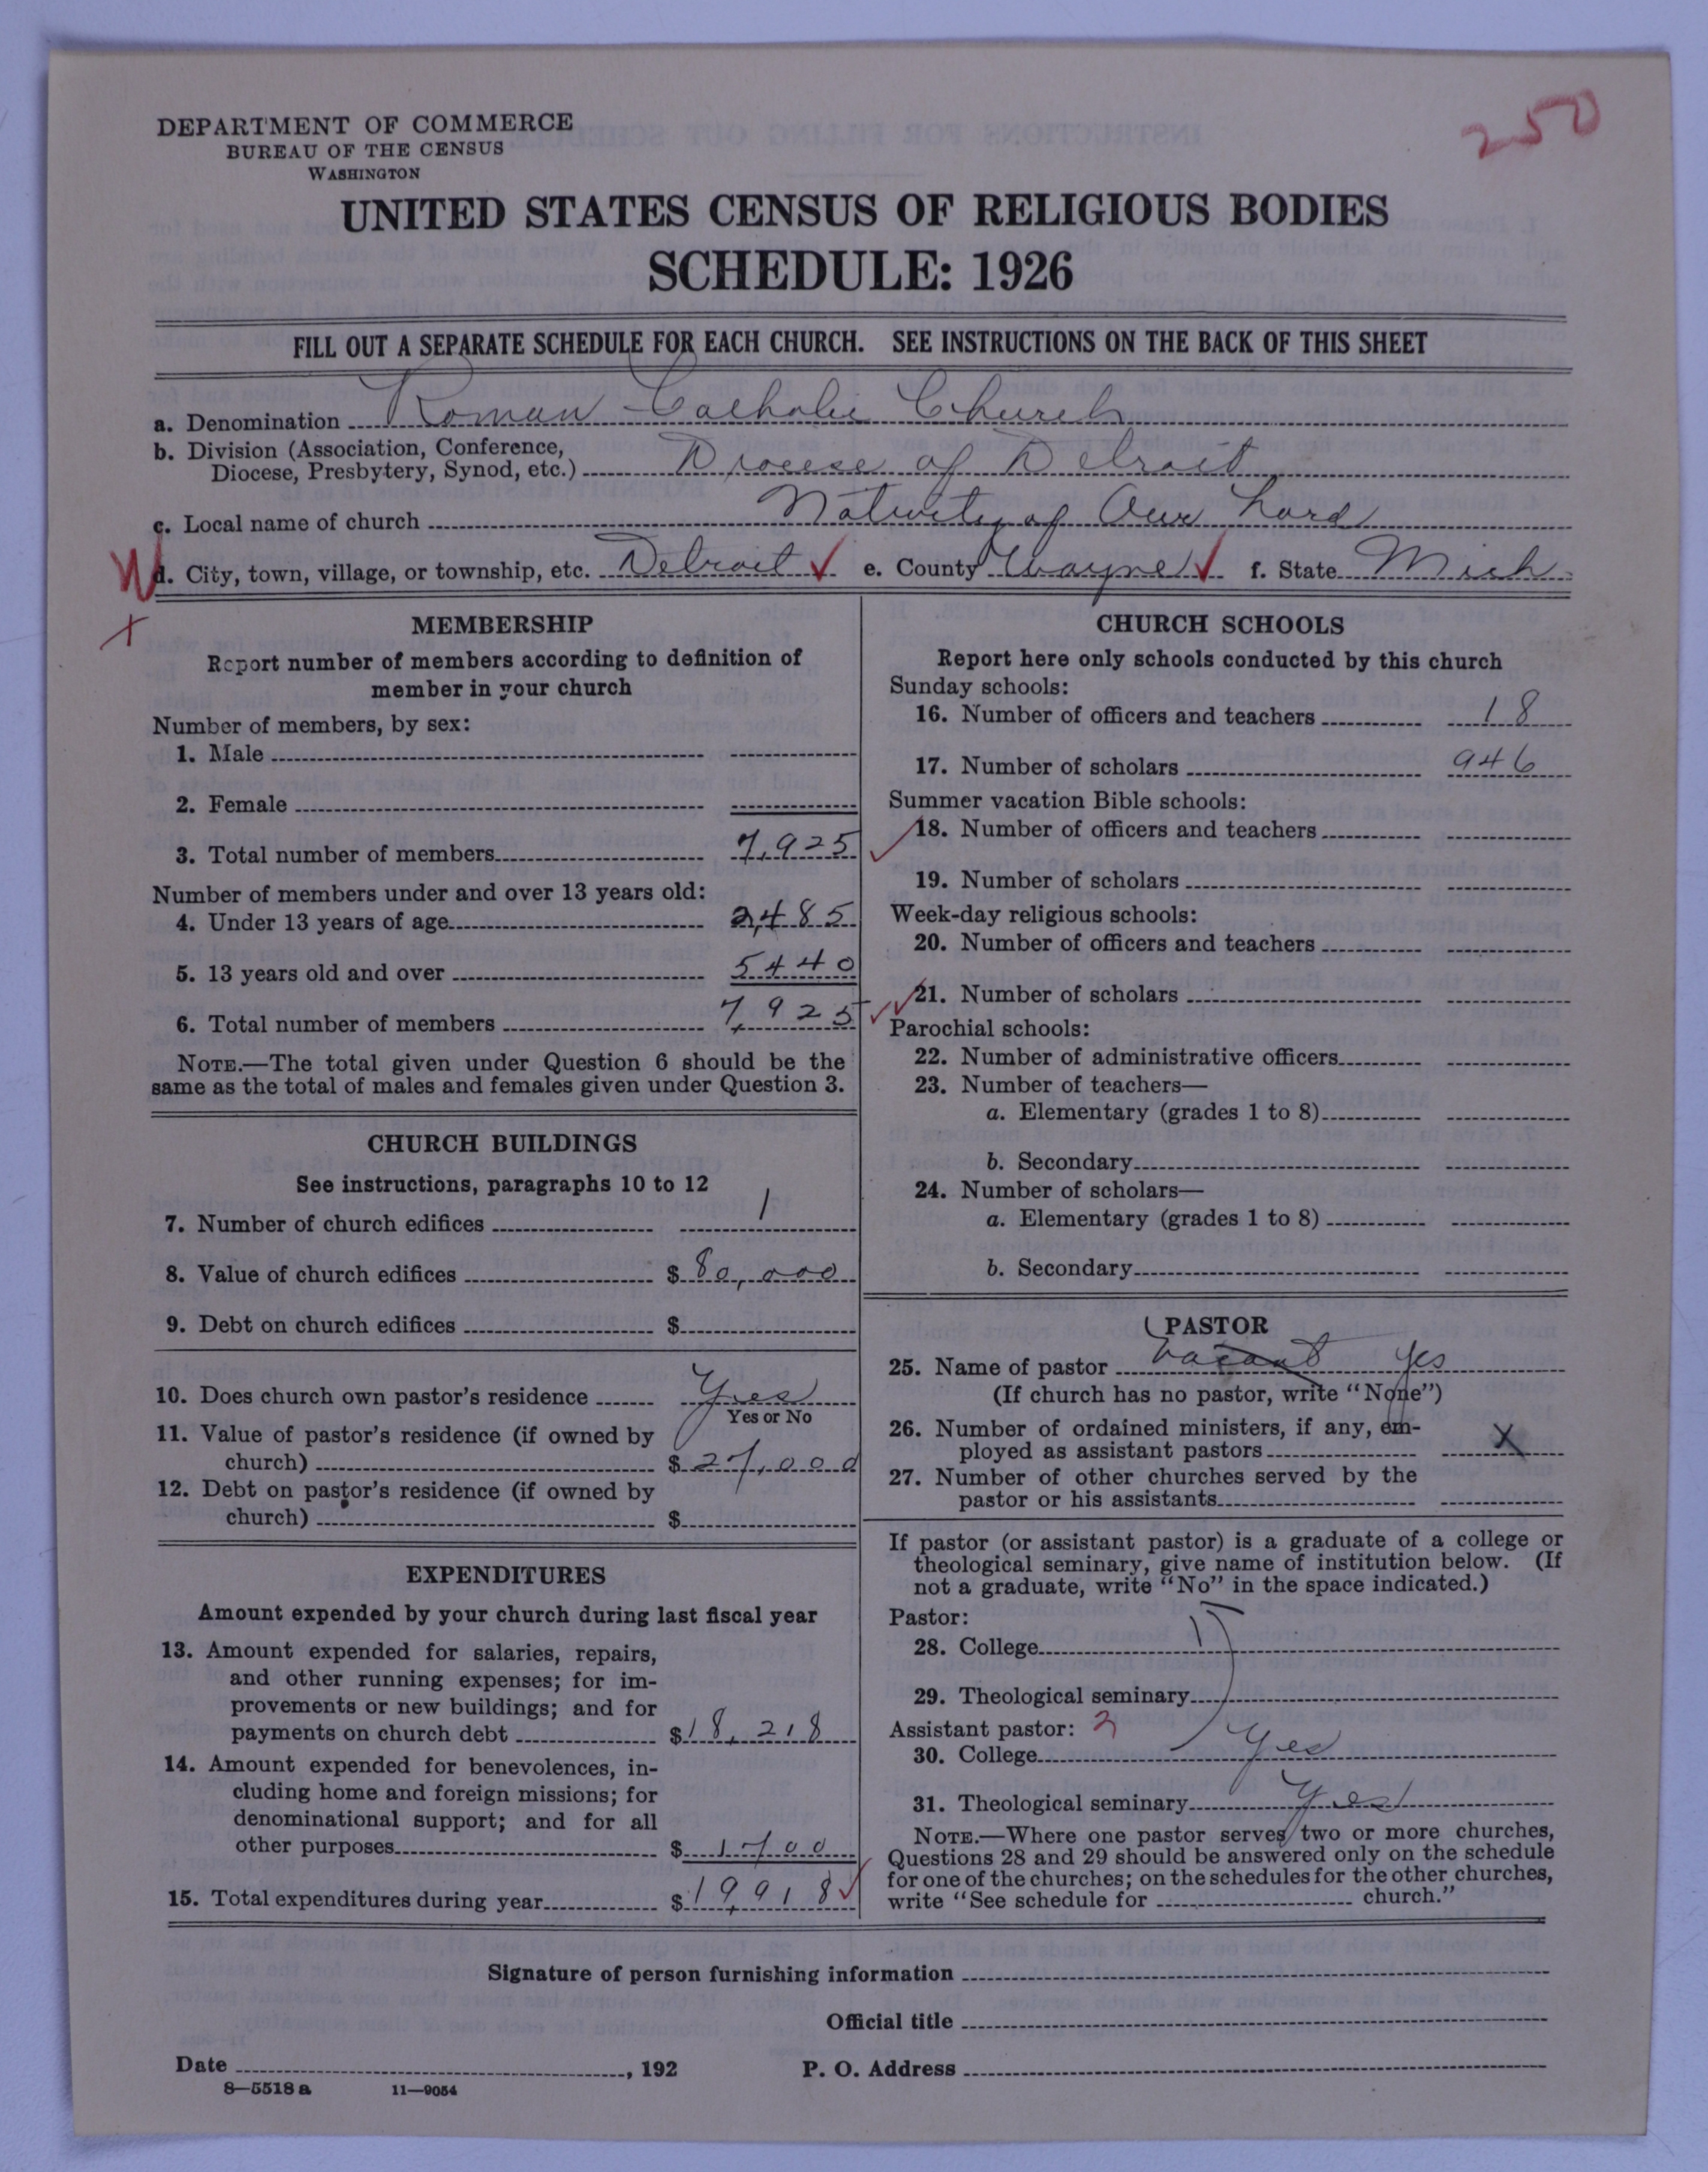 250
DEPARTMENT OF COMMERCE
BUREAU OF THE CENSUS
WASHINGTON
UNITED STATES CENSUS OF RELIGIOUS BODIES
SCHEDULE: 1926
FILL OUT A SEPARATE SCHEDULE FOR EACH CHURCH. SEE INSTRUCTIONS ON THE BACK OF THIS SHEET
a. Denomination Roman Catholic Church
b. Division (Association, Conference,
Diocese, Presbytery, Synod, etc.) Diocese of Detroit
c. Local name of church Nativity of Our Lord
W d. City, town, village, or township, etc. Detroit ✓ e. County Wayne ✓ f. State Mich.
x
MEMBERSHIP
Report number of members according to definition of
member in your church
Number of members, by sex:
1. Male
2. Female
3. Total number of members 7,925
Number of members under and over 13 years old:
4. Under 13 years of age 2,485
5. 13 years old and over 5440
6. Total number of members 7,925 ✓
NOTE.—The total given under Question 6 should be the
same as the total of males and females given under Question 3.
CHURCH BUILDINGS
See instructions, paragraphs 10 to 12
7. Number of church edifices 1
8. Value of church edifices $ 80,000
9. Debt on church edifices $
10. Does church own pastor's residence Yes
Yes or No
11. Value of pastor's residence (if owned by
church) $ 27,000
12. Debt on pastor's residence (if owned by
church) $
EXPENDITURES
Amount expended by your church during last fiscal year
13. Amount expended for salaries, repairs,
and other running expenses; for im-
provements or new buildings; and for
payments on church debt $ 18,218
14. Amount expended for benevolences, in-
cluding home and foreign missions; for
denominational support; and for all
other purposes $ 1700
15. Total expenditures during year $ 19,918 ✓
CHURCH SCHOOLS
Report here only schools conducted by this church
Sunday schools:
16. Number of officers and teachers 18
17. Number of scholars 946
Summer vacation Bible schools:
✓ 18. Number of officers and teachers
19. Number of scholars
Week-day religious schools:
20. Number of officers and teachers
✓ 21. Number of scholars
Parochial schools:
22. Number of administrative officers
23. Number of teachers—
a. Elementary (grades 1 to 8)
b. Secondary
24. Number of scholars—
a. Elementary (grades 1 to 8)
b. Secondary
PASTOR
25. Name of pastor vacant Yes
(If church has no pastor, write "None")
26. Number of ordained ministers, if any, em-
ployed as assistant pastors X
27. Number of other churches served by the
pastor or his assistants
If pastor (or assistant pastor) is a graduate of a college or
theological seminary, give name of institution below. (If
not a graduate, write "No" in the space indicated.)
Pastor:
28. College
29. Theological seminary
Assistant pastor: 2
30. College Yes
31. Theological seminary Yes
NOTE.—Where one pastor serves two or more churches,
Questions 28 and 29 should be answered only on the schedule
for one of the churches; on the schedules for the other churches,
write "See schedule for church."
Signature of person furnishing information
Official title
Date , 192 P. O. Address
8—5518 a 11—9054